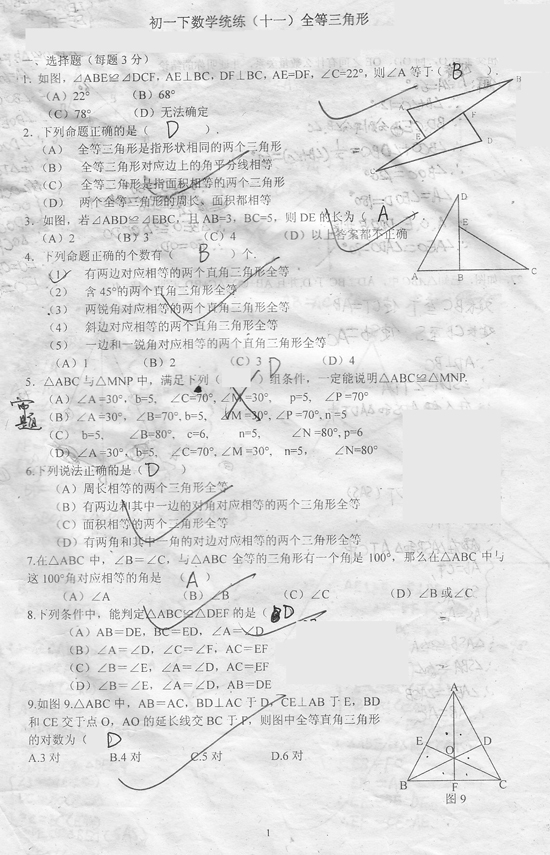 初一下数学统练（十一）全等三角形
一、选择题（每题3分）
1. 如图，⊿ABE≌⊿DCF，AE⊥BC，DF⊥BC，AE=DF，∠C=22°，则∠A 等于（ B ）.
（A）22° （B）68°
（C）78° （D）无法确定
2．下列命题正确的是（ D ）.
（A） 全等三角形是指形状相同的两个三角形
（B） 全等三角形对应边上的角平分线相等
（C） 全等三角形是指面积相等的两个三角形
（D） 两个全等三角形的周长、面积都相等
3．如图，若⊿ABD≌⊿EBC，且 AB=3，BC=5，则 DE 的长为（ A ）.
（A）2 （B）3 （C）4 （D）以上答案都不正确
4．下列命题正确的个数有（ B ）个.
（1） 有两边对应相等的两个直角三角形全等
（2） 含 45°的两个直角三角形全等
（3） 两锐角对应相等的两个直角三角形全等
（4） 斜边对应相等的两个直角三角形全等
（5） 一边和一锐角对应相等的两个直角三角形全等
（A）1 （B）2 （C）3 （D）4
5．△ABC 与△MNP 中，满足下列（ D ）组条件，一定能说明△ABC≌△MNP.
（A）∠A =30°，b=5， ∠C=70°, ∠M =30°， p=5， ∠P =70°
（B）∠A =30°， ∠B=70°, b=5， ∠M =30°, ∠P =70°, n =5
（C） b=5， ∠B=80°， c=6， n=5， ∠N =80°, p=6
（D）∠A =30°，b=5， ∠C=70°, ∠M =30°， n=5， ∠N=80°
6.下列说法正确的是（ D ）
（A）周长相等的两个三角形全等
（B）有两边和其中一边的对角对应相等的两个三角形全等
（C）面积相等的两个三角形全等
（D）有两角和其中一角的对边对应相等的两个三角形全等
7.在△ABC 中，∠B＝∠C，与△ABC 全等的三角形有一个角是 100°，那么在△ABC 中与
这 100°角对应相等的角是 （ A ）
（A）∠A （B）∠B （C）∠C （D）∠B 或∠C
8.下列条件中，能判定△ABC≌△DEF 的是（ D
（A）AB＝DE，BC＝ED，∠A＝∠D
（B）∠A＝∠D，∠C＝∠F，AC＝EF
（C）∠B＝∠E，∠A＝∠D，AC＝EF
（D）∠B＝∠E，∠A＝∠D，AB＝DE
9.如图 9.△ABC 中，AB＝AC，BD⊥AC 于 D，CE⊥AB 于 E，BD
和 CE 交于点 O，AO 的延长线交 BC 于 F，则图中全等直角三角形
的对数为（ D
A.3 对 B.4 对 C.5 对 D.6 对
A
E D
O
B F C
图 9
1